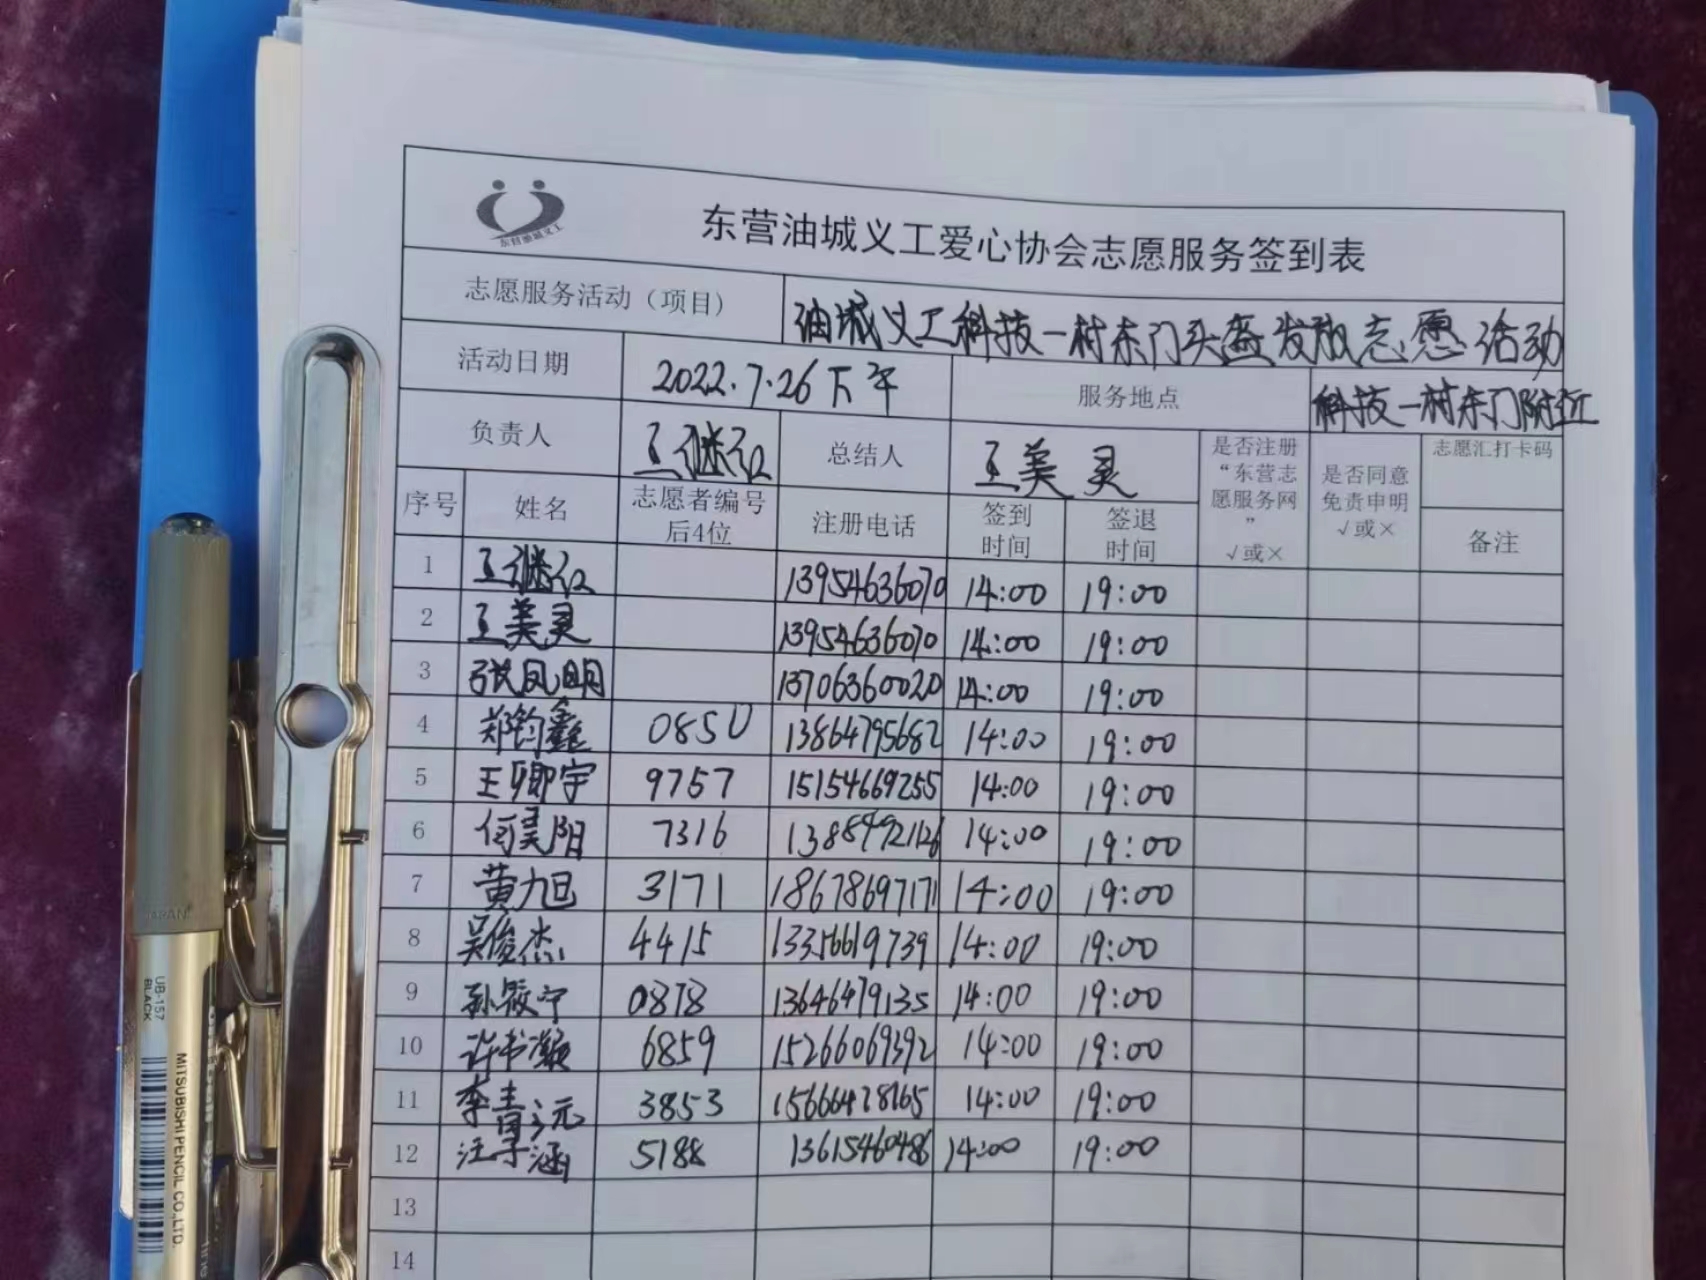 东营油城义工
东营油城义工爱心协会志愿服务签到表
志愿服务活动（项目） 油城义工科技一村东门头盔发放志愿活动
活动日期 2022.7.26下午 服务地点 科技一村东门附近
负责人 王继红 总结人 王美灵 是否注册“东营志愿服务网” √或× 是否同意免责申明 √或× 志愿汇打卡码
序号 姓名 志愿者编号后4位 注册电话 签到时间 签退时间 备注
1 王继红 13954636070 14:00 19:00
2 王美灵 13954636070 14:00 19:00
3 张凤明 13706360020 14:00 19:00
4 郑钧鑫 0850 13864795682 14:00 19:00
5 王卿宇 9757 15154669255 14:00 19:00
6 何昊阳 7316 14:00 19:00
7 黄旭 3171 18678697171 14:00 19:00
8 吴俊杰 4415 14:00 19:00
9 孙筱宁 0878 13646479135 14:00 19:00
10 许书灏 6859 15266069392 14:00 19:00
11 李青元 3853 14:00 19:00
12 汪子涵 5188 13615460486 14:00 19:00
13
14
JAPAN
UB-157
BLACK
MITSUBISHI PENCIL CO.,LTD.